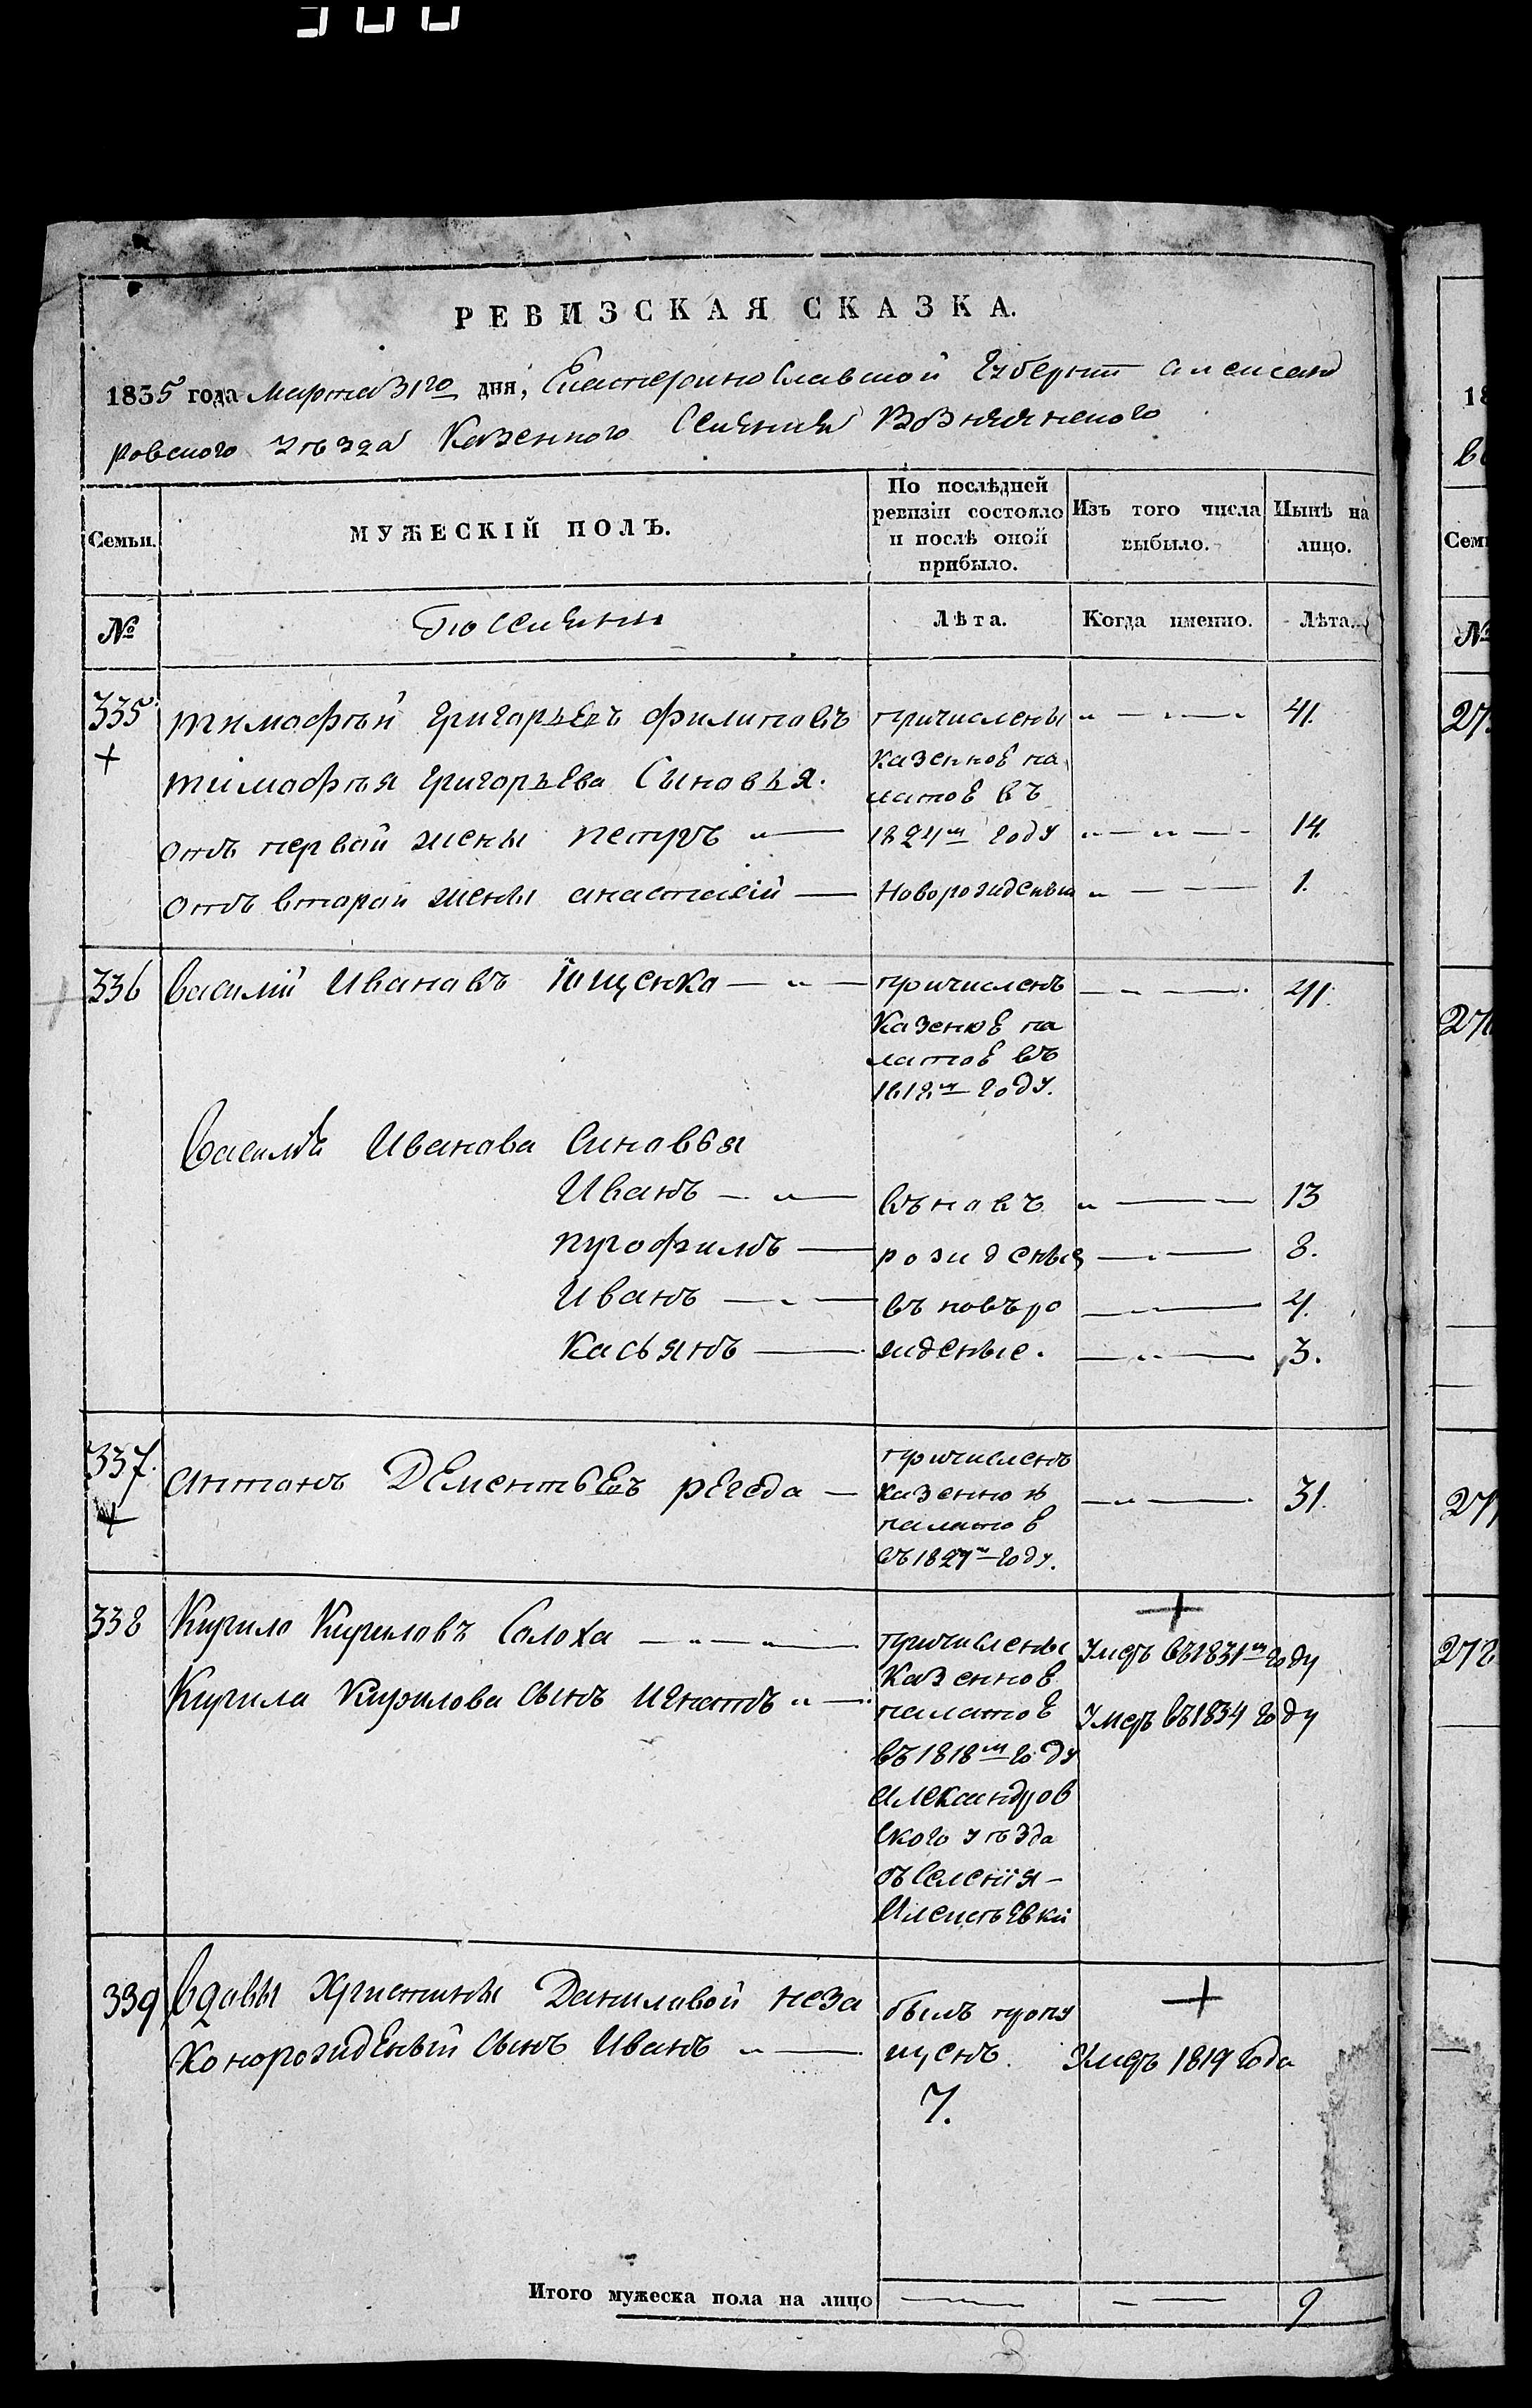 РЕВИЗСКАЯ СКАЗКА.
1835 года Марта 31го дня, Екатеринославской Губернии Александ
ровского Уѣзда Казенного Селения
Семьи. МУЖЕСКІЙ ПОЛЪ. По послѣдней ревизіи состояло и послѣ оной прибыло. Изъ того числа выбыло. Нынѣ на лицо.
№ Поселяни Лѣта. Когда именно. Лѣта.
335 Тимофѣй Григорьевъ Филиповъ причислены 41.
Казенной па
Тимофѣя Григорьева Сыновья. латой въ
отъ первой жены Петръ 1824м году 14.
отъ второй жены Анастасій Новорожденый 1.
336 Василій Ивановъ Ющенка причисленъ 41.
Казеной па
латой въ
1818м году.
Василія Иванова Синовья
Иванъ въновъ 13
Профилъ рожденые 8.
Иванъ въ новъро 4.
Касьянъ жденые. 3.
337. Антонъ Дементьевъ Регеда причисленъ Казенной палатой въ 1827м году. 31.
338 Кирило Кириловъ Солоха причислены Умеръ въ 1831м году
Казенной
Кирила Кирилова сынъ Игнатъ палатой Умеръ въ 1834 году
въ 1818м году
Александров
ского уѣзда
съ Селенія
339 Вдовы Христины Даниловой неза былъ пропу
конорожденый сынъ Иванъ щенъ. Умеръ 1819 года
7.
Итого мужеска пола на лицо 9